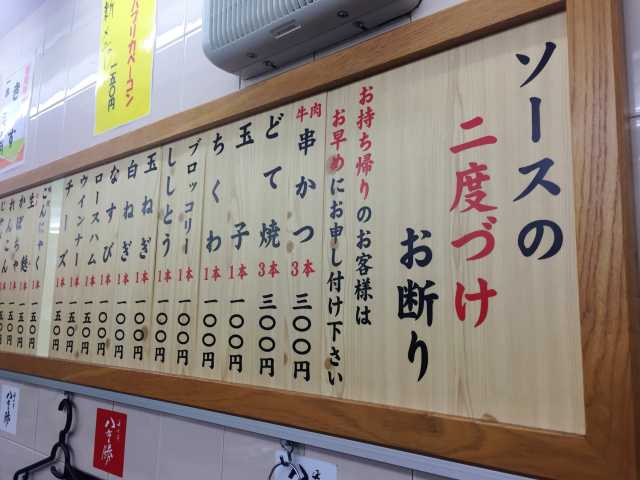 ソースの
二度づけ
お断り
お持ち帰りのお客様は
お早めにお申し付け下さい
牛肉串かつ 3本 三〇〇円
どて焼 3本 三〇〇円
玉子 1本 一〇〇円
ちくわ 1本 一〇〇円
ブロッコリー 1本 一五〇円
ししとう 1本 一〇〇円
玉ねぎ 1本 一〇〇円
白ねぎ 1本 一〇〇円
なすび 1本 一〇〇円
ロースハム 1本 一五〇円
ウインナー 1本 一五〇円
チーズ 1本 一五〇円
こんにゃく 1本
生麩 1本
かぼちゃ 1本
れんこん 1本
パプリカベーコン
一五〇円
きす
八重勝